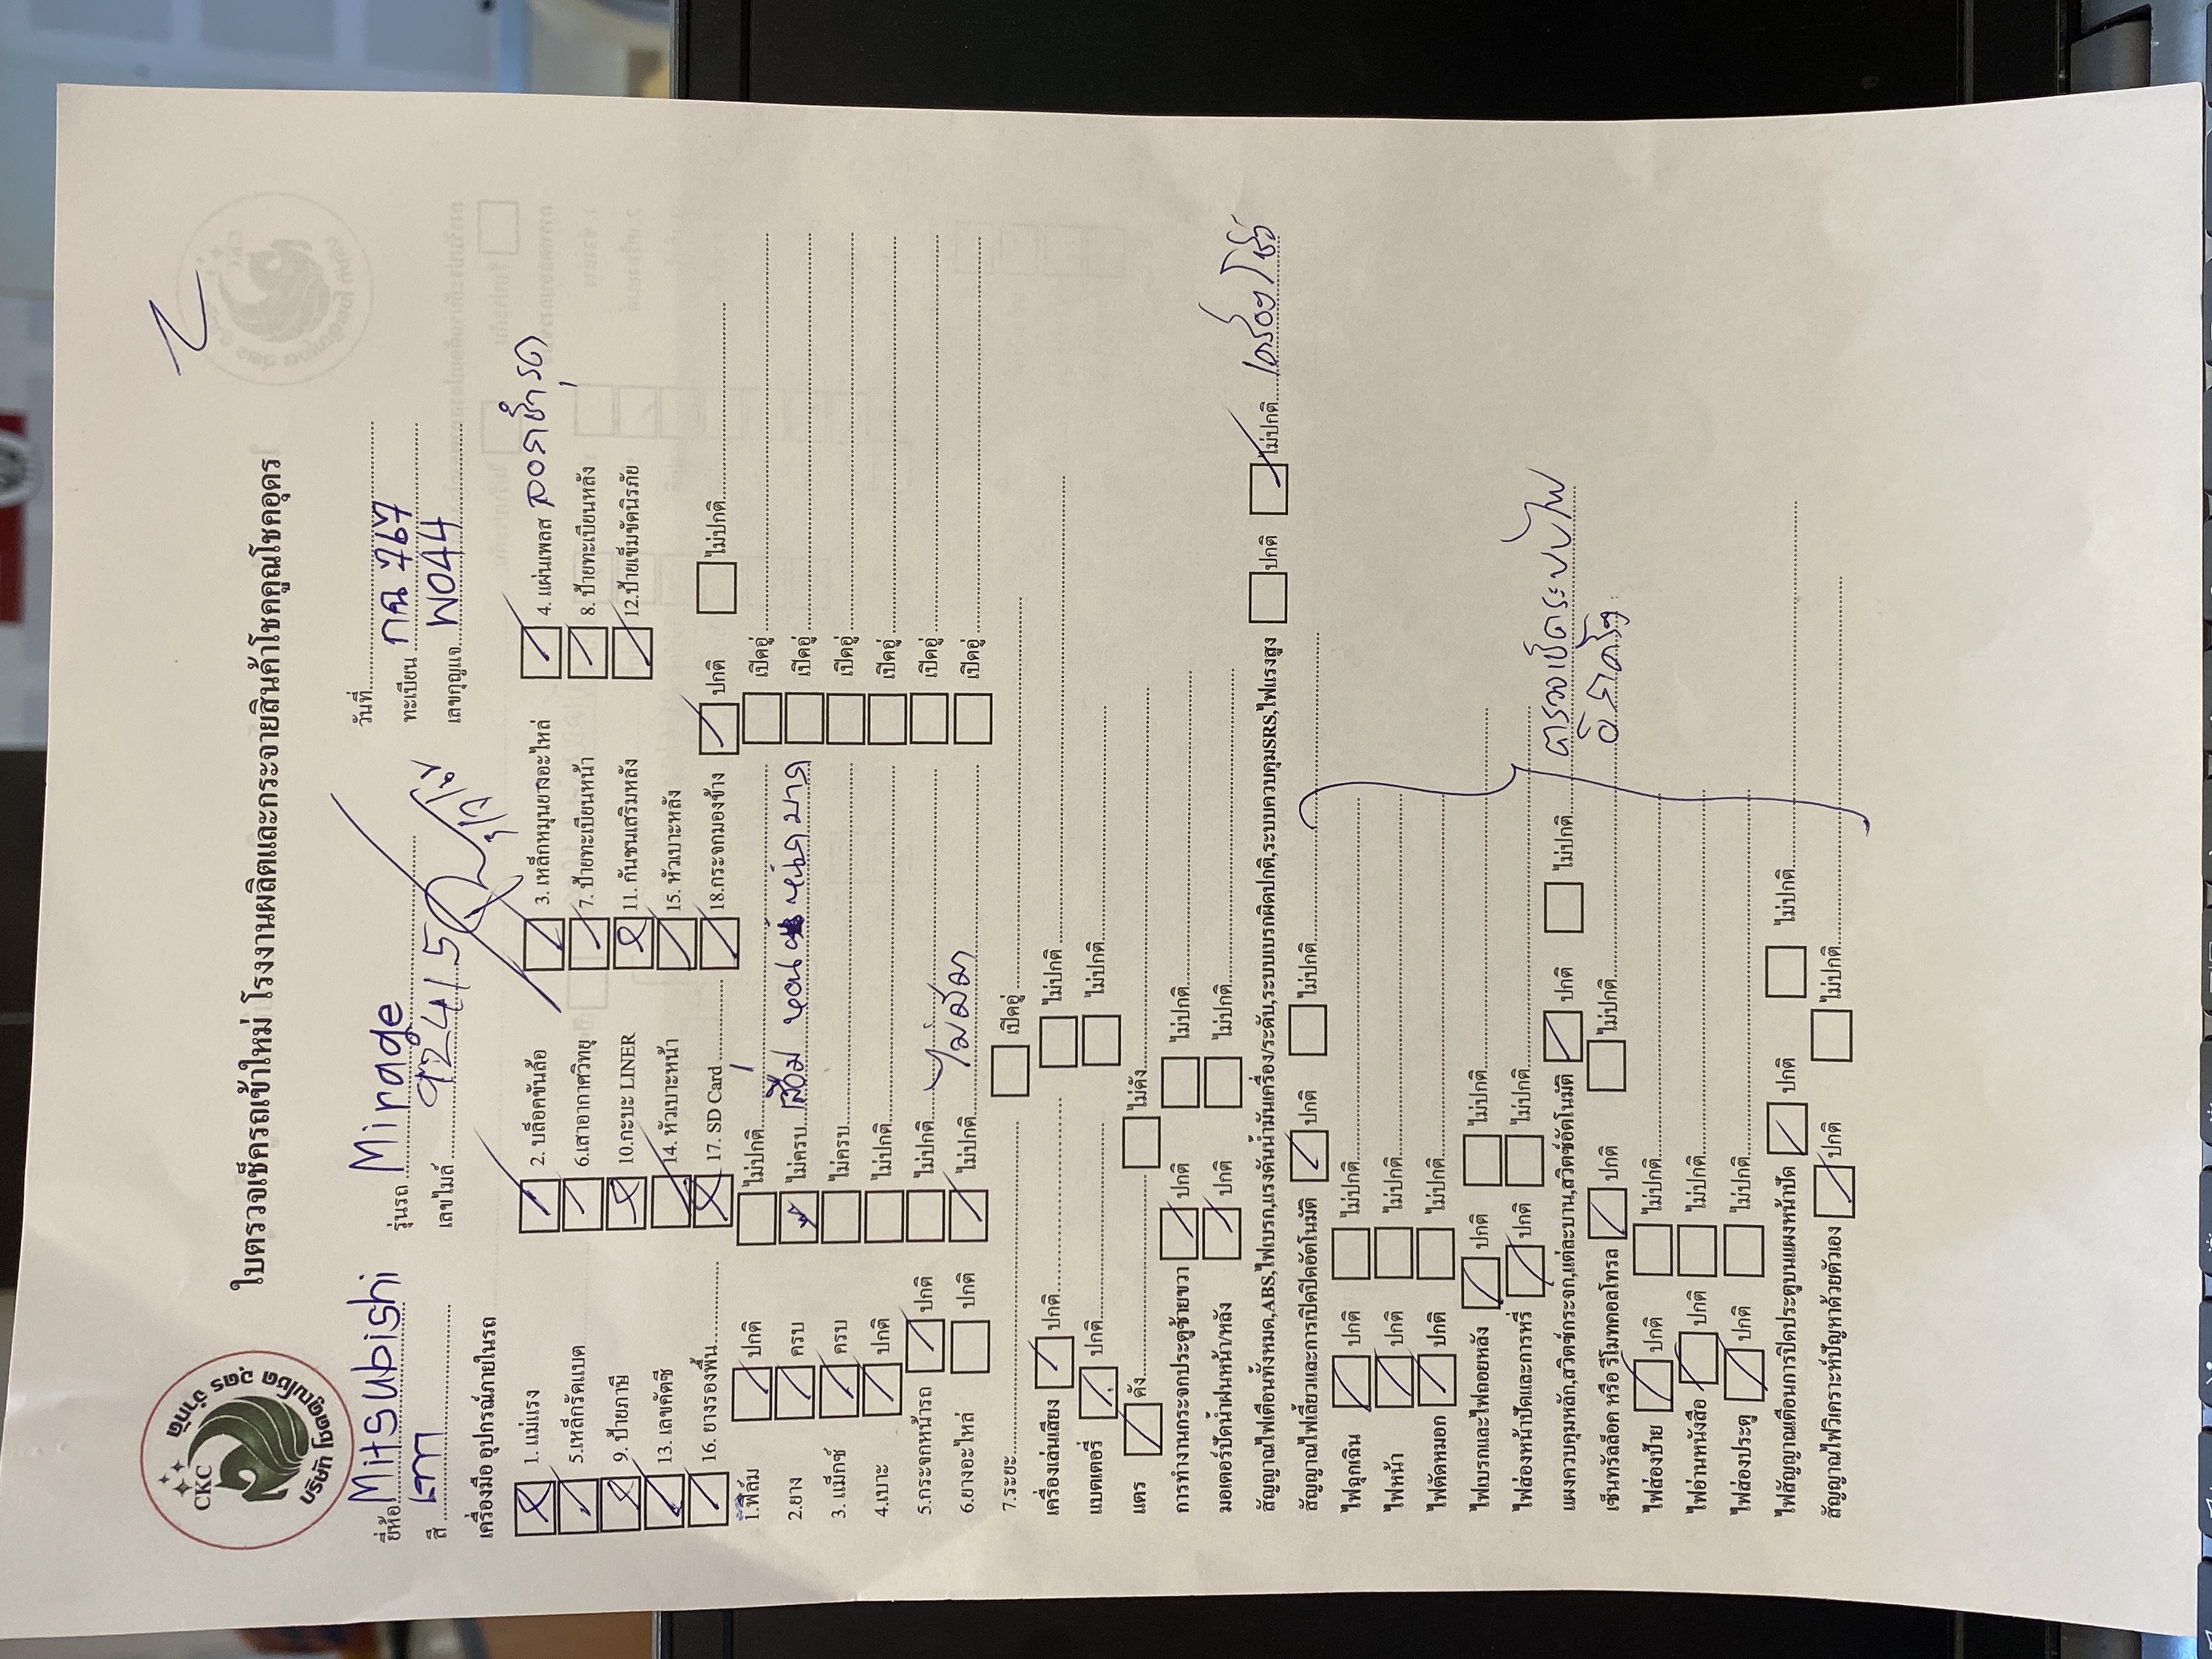 CKC
บริษัท โชคคูณโชค อุดร จำกัด
ใบตรวจเช็ครถเข้าใหม่ โรงงานผลิตและกระจายสินค้าโชคคูณโชคอุดร
วันที่
ยี่ห้อ Mitsubishi รุ่นรถ Mirage ทะเบียน กฉ 767
สี เทา เลขไมล์ 92415 เลขกุญแจ. W044
เครื่องมือ อุปกรณ์ภายในรถ
1. แม่แรง 2. บล็อคขันล้อ 3. เหล็กหมุนยางอะไหล่ 4. แผ่นเพลส
5.เหล็กรัดแบต 6.เสาอากาศวิทยุ 7. ป้ายทะเบียนหน้า 8. ป้ายทะเบียนหลัง
9. ป้ายภาษี 10.กะบะ LINER 11. กันชนเสริมหลัง 12.ป้ายเข็มขัดนิรภัย
13. เลขคัตซี 14. หัวเบาะหน้า 15. หัวเบาะหลัง
16. ยางรองพื้น 17. SD Card 18.กระจกมองข้าง ปกติ ไม่ปกติ
1.ฟิล์ม ปกติ ไม่ปกติ เปิดอู่
2.ยาง ครบ ไม่ครบ เปิดอู่
3. แม็กซ์ ครบ ไม่ครบ เปิดอู่
4.เบาะ ปกติ ไม่ปกติ เปิดอู่
5.กระจกหน้ารถ ปกติ ไม่ปกติ เปิดอู่
6.ยางอะไหล่ ปกติ ไม่ปกติ เปิดอู่
7.ระยะ เปิดอู่
เครื่องเล่นเสียง ปกติ ไม่ปกติ
แบตเตอรี่ ปกติ ไม่ปกติ
แตร ดัง ไม่ดัง
การทำงานกระจกประตูซ้ายขวา ปกติ ไม่ปกติ
มอเตอร์ปัดน้ำฝนหน้า/หลัง ปกติ ไม่ปกติ
สัญญาณไฟเตือนทั้งหมด,ABS,ไฟเบรก,แรงดันน้ำมันเครื่อง/ระดับ,ระบบเบรกผิดปกติ,ระบบควบคุมSRS,ไฟแรงสูง ปกติ ไม่ปกติ เครื่องโชว์
สัญญาณไฟเลี้ยวและการเปิดปิดอัตโนมัติ ปกติ ไม่ปกติ
ไฟฉุกเฉิน ปกติ ไม่ปกติ
ไฟหน้า ปกติ ไม่ปกติ
ไฟตัดหมอก ปกติ ไม่ปกติ
ไฟเบรกและไฟถอยหลัง ปกติ ไม่ปกติ
ไฟส่องหน้าปัดและการหรี่ ปกติ ไม่ปกติ
แผงควบคุมหลัก,สวิตช์กระจก,แต่ละบาน,สวิตช์อัตโนมัติ ปกติ ไม่ปกติ ตรวจเช็คระบบไฟ
เซ็นทรัลล็อค หรือ รีโมทคอลโทรล ปกติ ไม่ปกติ อีกครั้ง
ไฟส่องป้าย ปกติ ไม่ปกติ
ไฟอ่านหนังสือ ปกติ ไม่ปกติ
ไฟส่องประตู ปกติ ไม่ปกติ
ไฟสัญญาณเตือนการปิดประตูบนแผงหน้าปัด ปกติ ไม่ปกติ
สัญญาณไฟวิเคราะห์ปัญหาด้วยตัวเอง ปกติ ไม่ปกติ